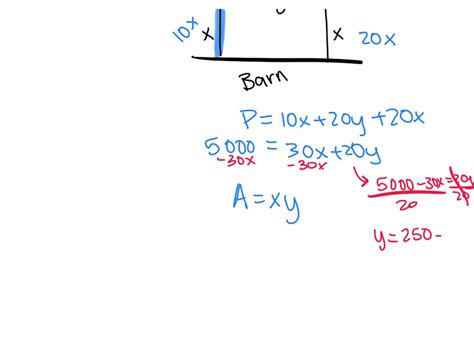 y
10x x x 20x
Barn
P = 10x+20y+20x
5000 = 30x+20y
-30x -30x
5000-30x=20y
20 20
A=xy
y=250-